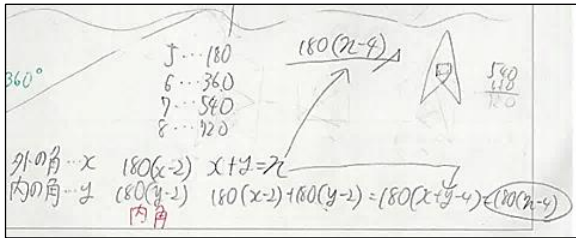 5…180
6…360
7…540
8…720
180(n-4)
360°
540
720
外の角…x 180(x-2) x+y=n
内の角…y 180(y-2) 180(x-2)+180(y-2)=180(x+y-4)=180(n-4)
内角